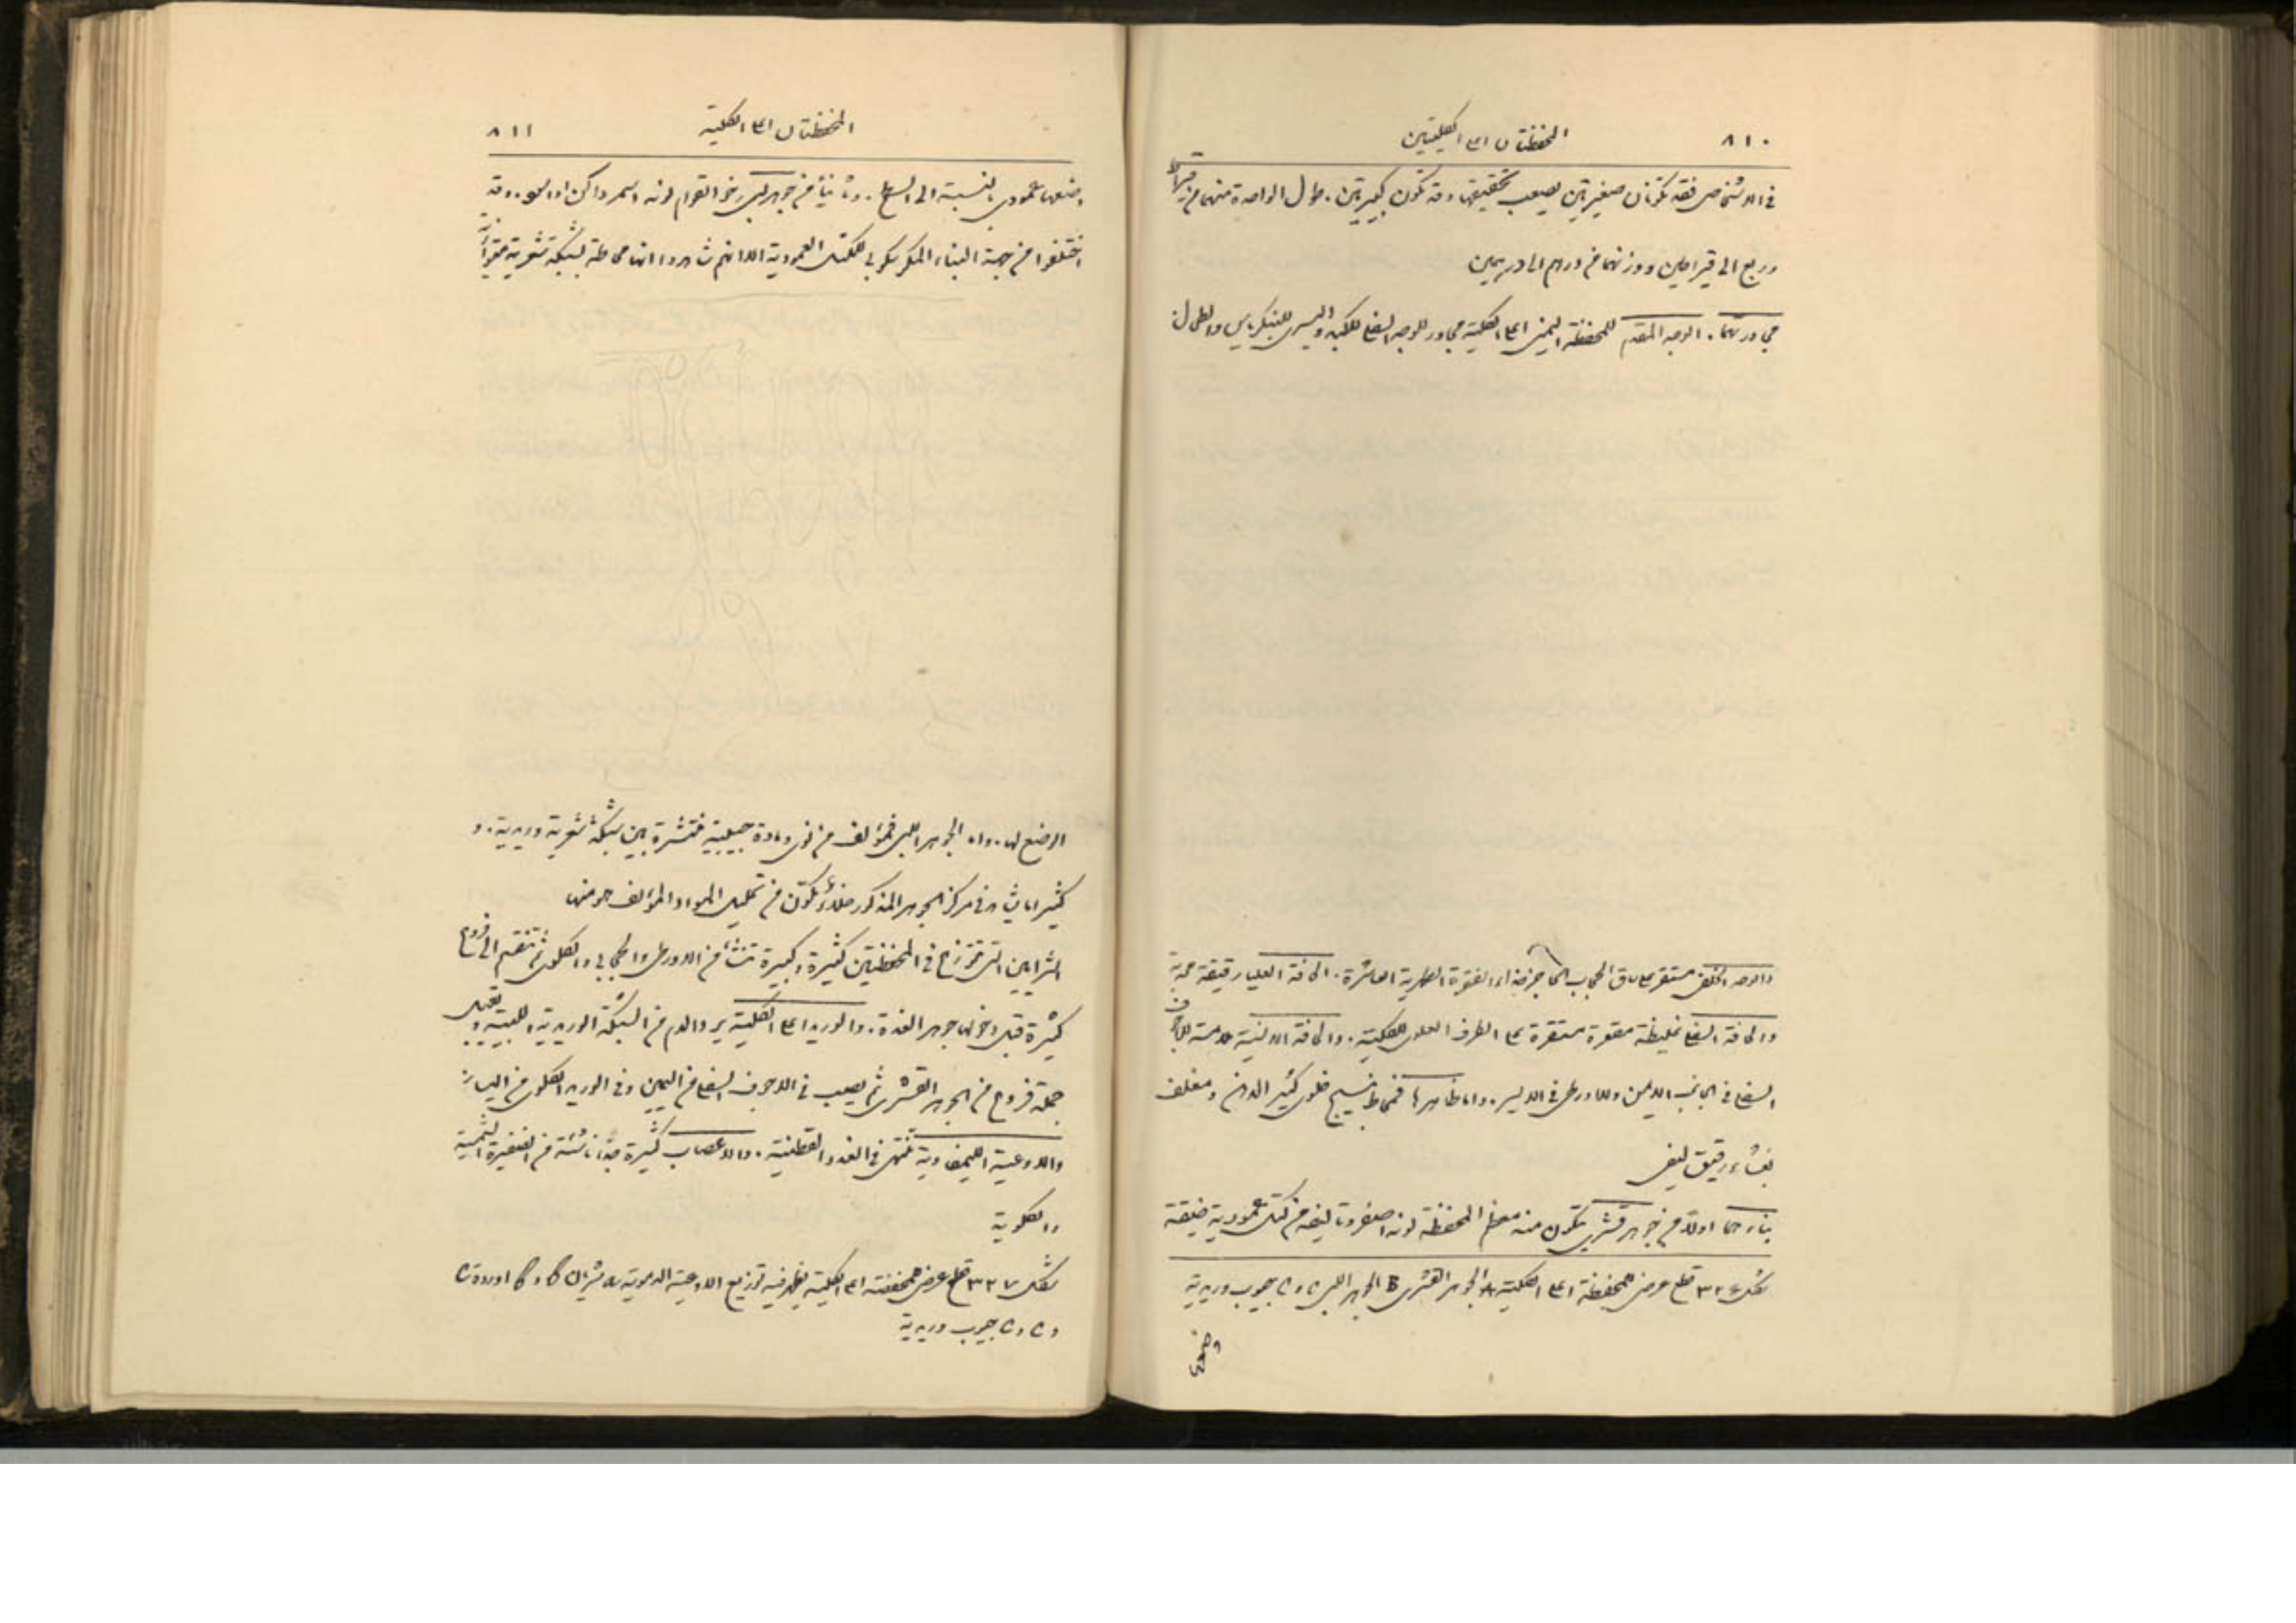 ٨١٠
المحفظتان اعلى الكليتين
في الاشخاص فقد تكونان صغيرتين يصعب تحقيقهما وقد تكونان كبيرتين. طول الواحدة منهما من قيراط
وربع الى قيراطين ووزنهما من درهم الى درهمين
مجاورتهما. الوجه المقدم للمحفظة اليمنى اعلى الكلية مجاور للوجه السفلي للكبد واليسرى للبنكرياس والطحال
والوجه الخلفي مستقر على ساق الحجاب الحاجز حذاء الفقرة الظهرية العاشرة. الحافة العليا رقيقة محدبة
والحافة السفلى غليظة مقعرة مستقرة على الطرف العلوي للكلية. والحافة الانسية ملامسة للاجوف
السفلي في الجانب الايمن وللاورطى في الايسر. واما ظاهرها فمحاط بنسيج خلوي كثير الدهن ومغلف
بغشاء رقيق ليفي
بناؤهما اولاً من جوهر قشري يتكون منه معظم المحفظة لونه اصفر وتاليفه من كتل عمودية ضيقة
شكل ٣٢٦ قطع عرضي للمحفظة اعلى الكلية A الجوهر القشري B الجوهر اللبي C و C جيوب وريدية
٨١١
المحفظتان اعلى الكلية
وضعها عمودي بالنسبة الى السطح. وثانياً من جوهر لبي رخو القوام لونه اسمر داكن او اسود. وقد
اختلفوا من جهة البناء المكرسكوبي للكتل العمودية الا انهم شاهدوا انها محاطة بشبكة شعرية متوازية
الوضع لها. واما الجوهر اللبي فمؤلف من نوى ومادة حبيبية منتشرة بين شبكة شعرية وريدية. و
كثيراً ما يشاهد في مركز الجوهر المذكور خلاء يتكون من تحليل المواد المؤلف هو منها
الشرايين التي تتوزع في المحفظتين كثيرة وكبيرة تنشأ من الاورطى والحجابي والكلوي ثم تنقسم الى فروع
كثيرة قبل دخولها جوهر الغدة. والوريد اعلى الكلية يرد الدم من الشبكة الوريدية اللبية ويقبل
جملة فروع من الجوهر القشري ثم يصب في الاجوف السفلي من اليمين وفي الوريد الكلوي من اليسار
والاوعية الليمفاوية تنتهي في الغدد القطنية. والاعصاب كثيرة جداً ناشئة من الضفيرة الشمسية
والكلوية
شكل ٣٢٧ قطع عرضي لمحفظة اعلى الكلية يظهر فيه توزيع الاوعية الدموية
و C و C جيوب وريدية